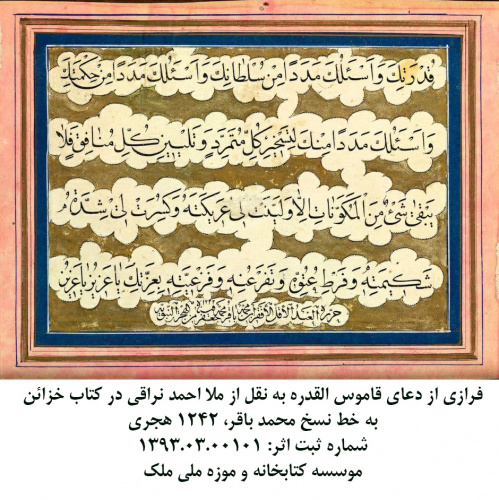 قدرتك و اسئلك مددا من سلطانك و اسئلك مددا من حكمتك
و اسئلك مددا منك لتسخير كل متمرد و تليين كل منافق فلا
يبقى شئ من المكونات الا و لينت لى عريكته و كسرت لى شدة
شكيمته و فرط عنق و تفرعنه و فرعنته بعزتك يا عزيز يا عزيز
حرره العبد الاقل
فرازی از دعای قاموس القدره به نقل از ملا احمد نراقی در کتاب خزائن
به خط نسخ محمد باقر، ۱۲۴۲ هجری
شماره ثبت اثر: ۱۳۹۳.۰۳.۰۰۱۰۱
موسسه کتابخانه و موزه ملی ملک